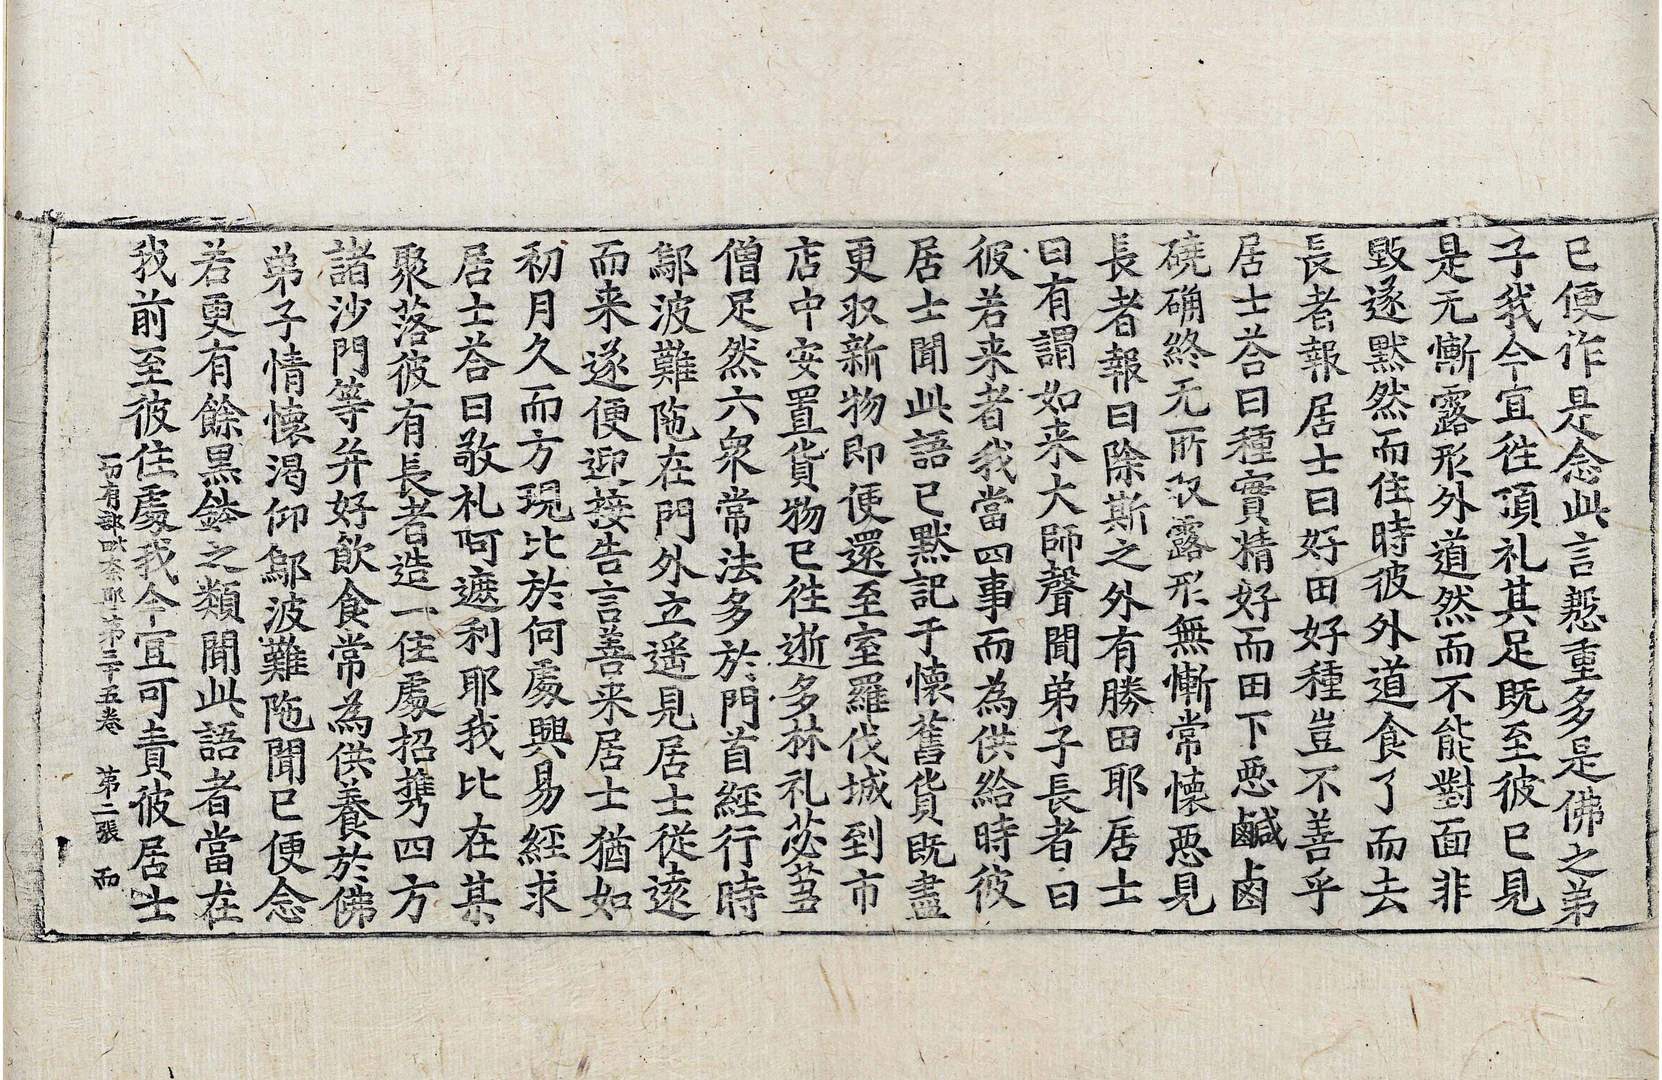 已便作是念此言慇重多是佛之弟
子我今宜往頂礼其足既至彼已見
是无慚露形外道然而不能對面非
毀遂黙然而住時彼外道食了而去
長者報居士曰好田好種豈不善乎
居士荅曰種實精好而田下惡鹹鹵
磽确終无所収露形無慚常懐惡見
長者報曰除斯之外有勝田耶居士
曰有謂如来大師聲聞弟子長者曰
彼若来者我當四事而為供給時彼
居士聞此語已黙記于懐舊貨既盡
更収新物即便還至室羅伐城到市
店中安置貨物已往逝多林礼苾芻
僧足然六衆常法多於門首經行時
鄔波難陁在門外立遥見居士從遠
而来遂便迎接告言善来居士猶如
初月久而方現比於何處興易經求
居士荅曰敬礼阿遮利耶我比在某
聚落彼有長者造一住處招携四方
諸沙門等并好飲食常為供養於佛
弟子情懐渇仰鄔波難陁聞已便念
若更有餘黒鉢之類聞此語者當在
我前至彼住處我今宜可責彼居士
一切有部毗奈耶第三十五卷　第二張　而